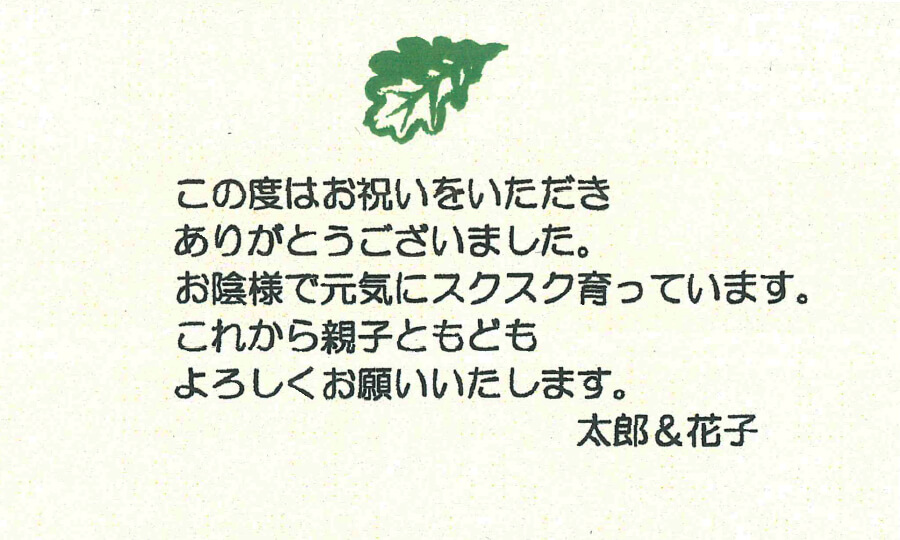 この度はお祝いをいただき
ありがとうございました。
お陰様で元気にスクスク育っています。
これから親子ともども
よろしくお願いいたします。
太郎＆花子